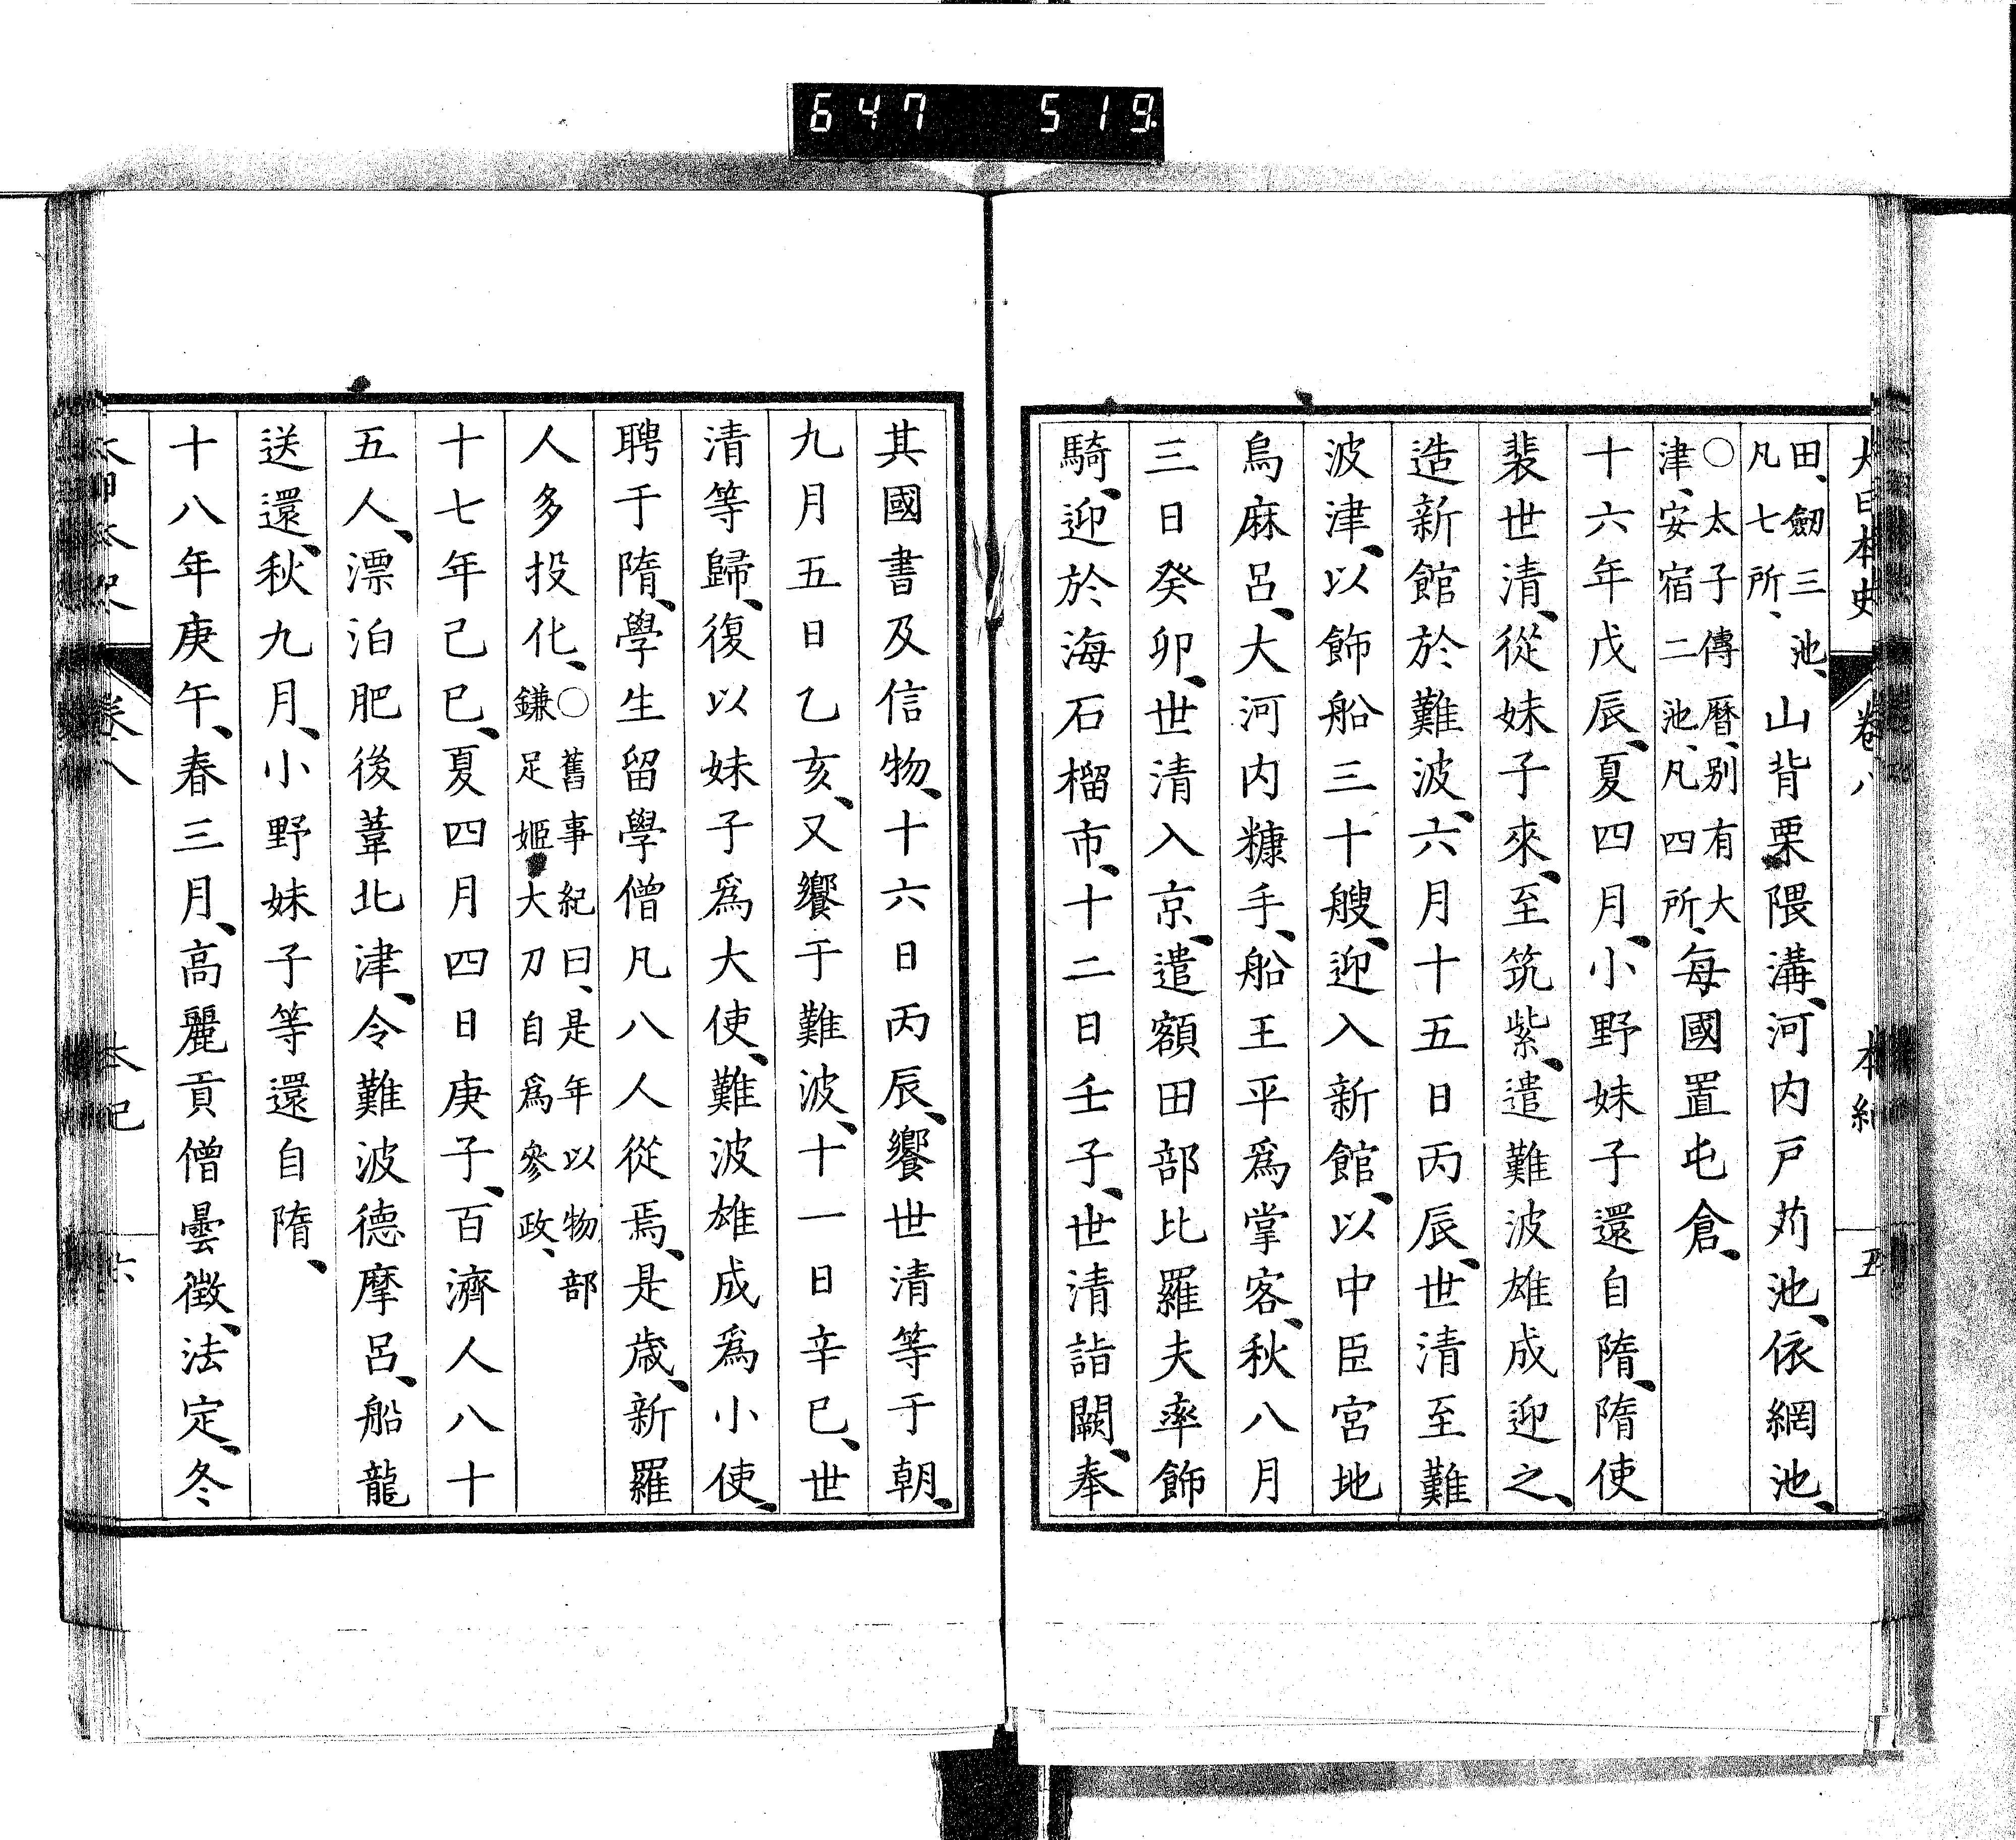 647 519
大日本史 卷八 本紀 五
田、劒三池、凡七所、山背栗隈溝、河内戸苅池、依網池、
○太子傳曆、別有大津、安宿二池、凡四所、每國置屯倉、
十六年戊辰、夏四月、小野妹子還自隋、隋使
裴世清、從妹子來、至筑紫、遣難波雄成迎之、
造新館於難波、六月十五日丙辰、世清至難
波津、以飾船三十艘、迎入新館、以中臣宮地
烏麻呂、大河内糠手、船王平爲掌客、秋八月
三日癸卯、世清入京、遣額田部比羅夫率飾
騎、迎於海石榴市、十二日壬子、世清詣闕、奉
其國書及信物、十六日丙辰、饗世清等于朝、
九月五日乙亥、又饗于難波、十一日辛巳、世
清等歸、復以妹子爲大使、難波雄成爲小使、
聘于隋、學生留學僧凡八人從焉、是歲、新羅
人多投化、○舊事紀曰、是年以物部鎌足姬大刀自爲參政、
十七年己巳、夏四月四日庚子、百濟人八十
五人、漂泊肥後葦北津、令難波德摩呂、船龍
送還、秋九月、小野妹子等還自隋、
十八年庚午、春三月、高麗貢僧曇徵、法定、冬
卷八 本紀 六